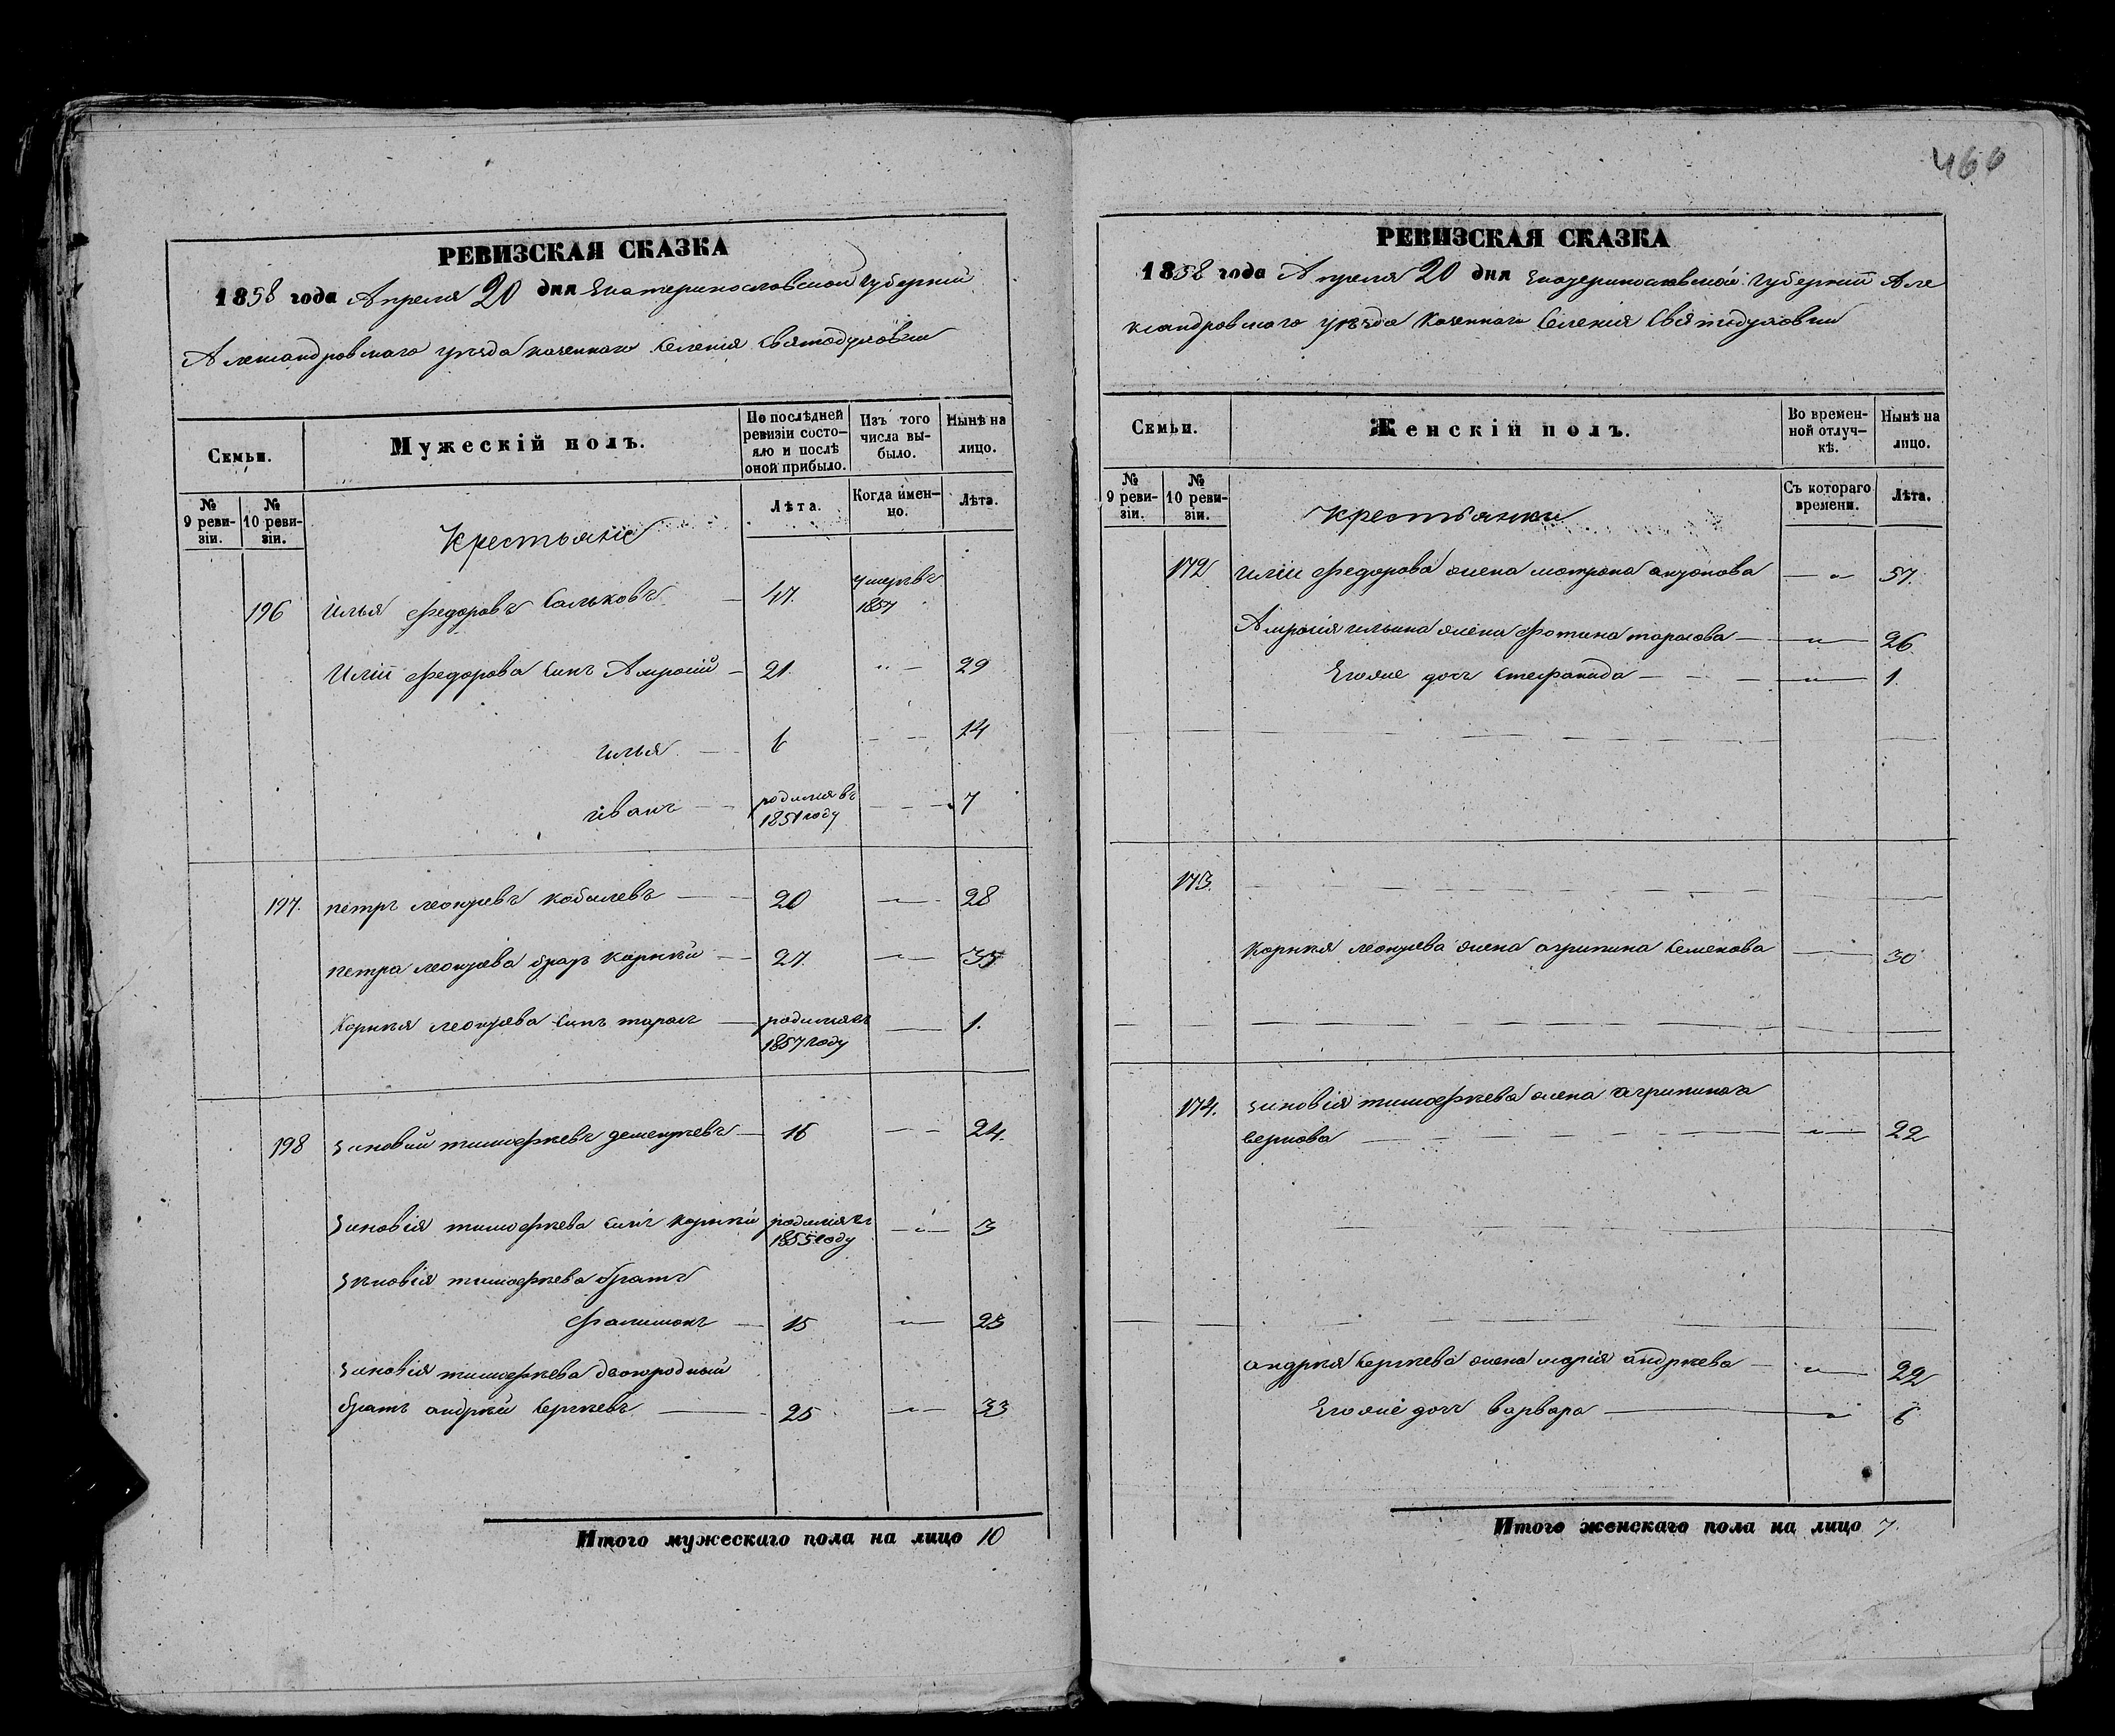 466
РЕВИЗСКАЯ СКАЗКА
1858 года Апреля 20 дня Екатеринославской губернии
Александровскаго уезда казеннаго селения Святодуховки
Семьи.
Мужескій полъ.
По послѣдней ревизіи состо-
яло и послѣ оной прибыло.
Изъ того числа вы-
было.
Нынѣ на лицо.
№ 9 реви-
зіи.
№ 10 реви-
зіи.
Крестьяне
Лѣта.
Когда имен-
но.
Лѣта.
196 Илья Федоровъ Сальковъ — 47. умеръ въ 1857
Иліи Федорова сынъ Амросій — 21. „ — 29
илья — 6 — — 14
иванъ — родился въ 1851 году — — 7
197. петръ леонтьевъ кобилевъ — 20 — „ — 28
петра леонтьева братъ корнѣй — 27. — „ — 35
Корнѣя леонтьева сынъ тарасъ — родился въ 1857 году — 1.
198 зиновий тимофѣевъ дементьевъ — 16 — — 24.
Зиновія тимофѣева сынъ корнѣй родился въ 1855 году — „ — 3
Зиновія тимофѣева братъ
филимонъ — 15 — „ — 23
зиновія тимофѣева двоюродный
братъ андрѣй сергѣевъ — 25 — „ — 33
Итого мужескаго пола на лицо 10
РЕВИЗСКАЯ СКАЗКА
1858 года Апреля 20 дня Екатеринославской губернии Але
ксандровскаго уѣзда казеннаго селения Святодуховки
Семьи.
Женскій полъ.
Во времен-
ной отлуч-
кѣ.
Нынѣ на лицо.
№ 9 реви-
зіи.
№ 10 реви-
зіи.
Крестьянки
Съ котораго времени.
Лѣта.
172 иліи федорова жена мотрона антонова — „ — 57.
Амросія ильина жена фотина тарасова — „ — 26
Егоже дочь стефанида — — — „ — 1.
173.
корнѣя леонтьева жена агрипина семенова — 30
174. зиновія тимофѣева жена агрипина
— „ — 22
андрѣя сергѣева жена марія андрѣева — „ — 22
Егоже дочь варвара — „ 6
Итого женскаго пола на лицо 7.